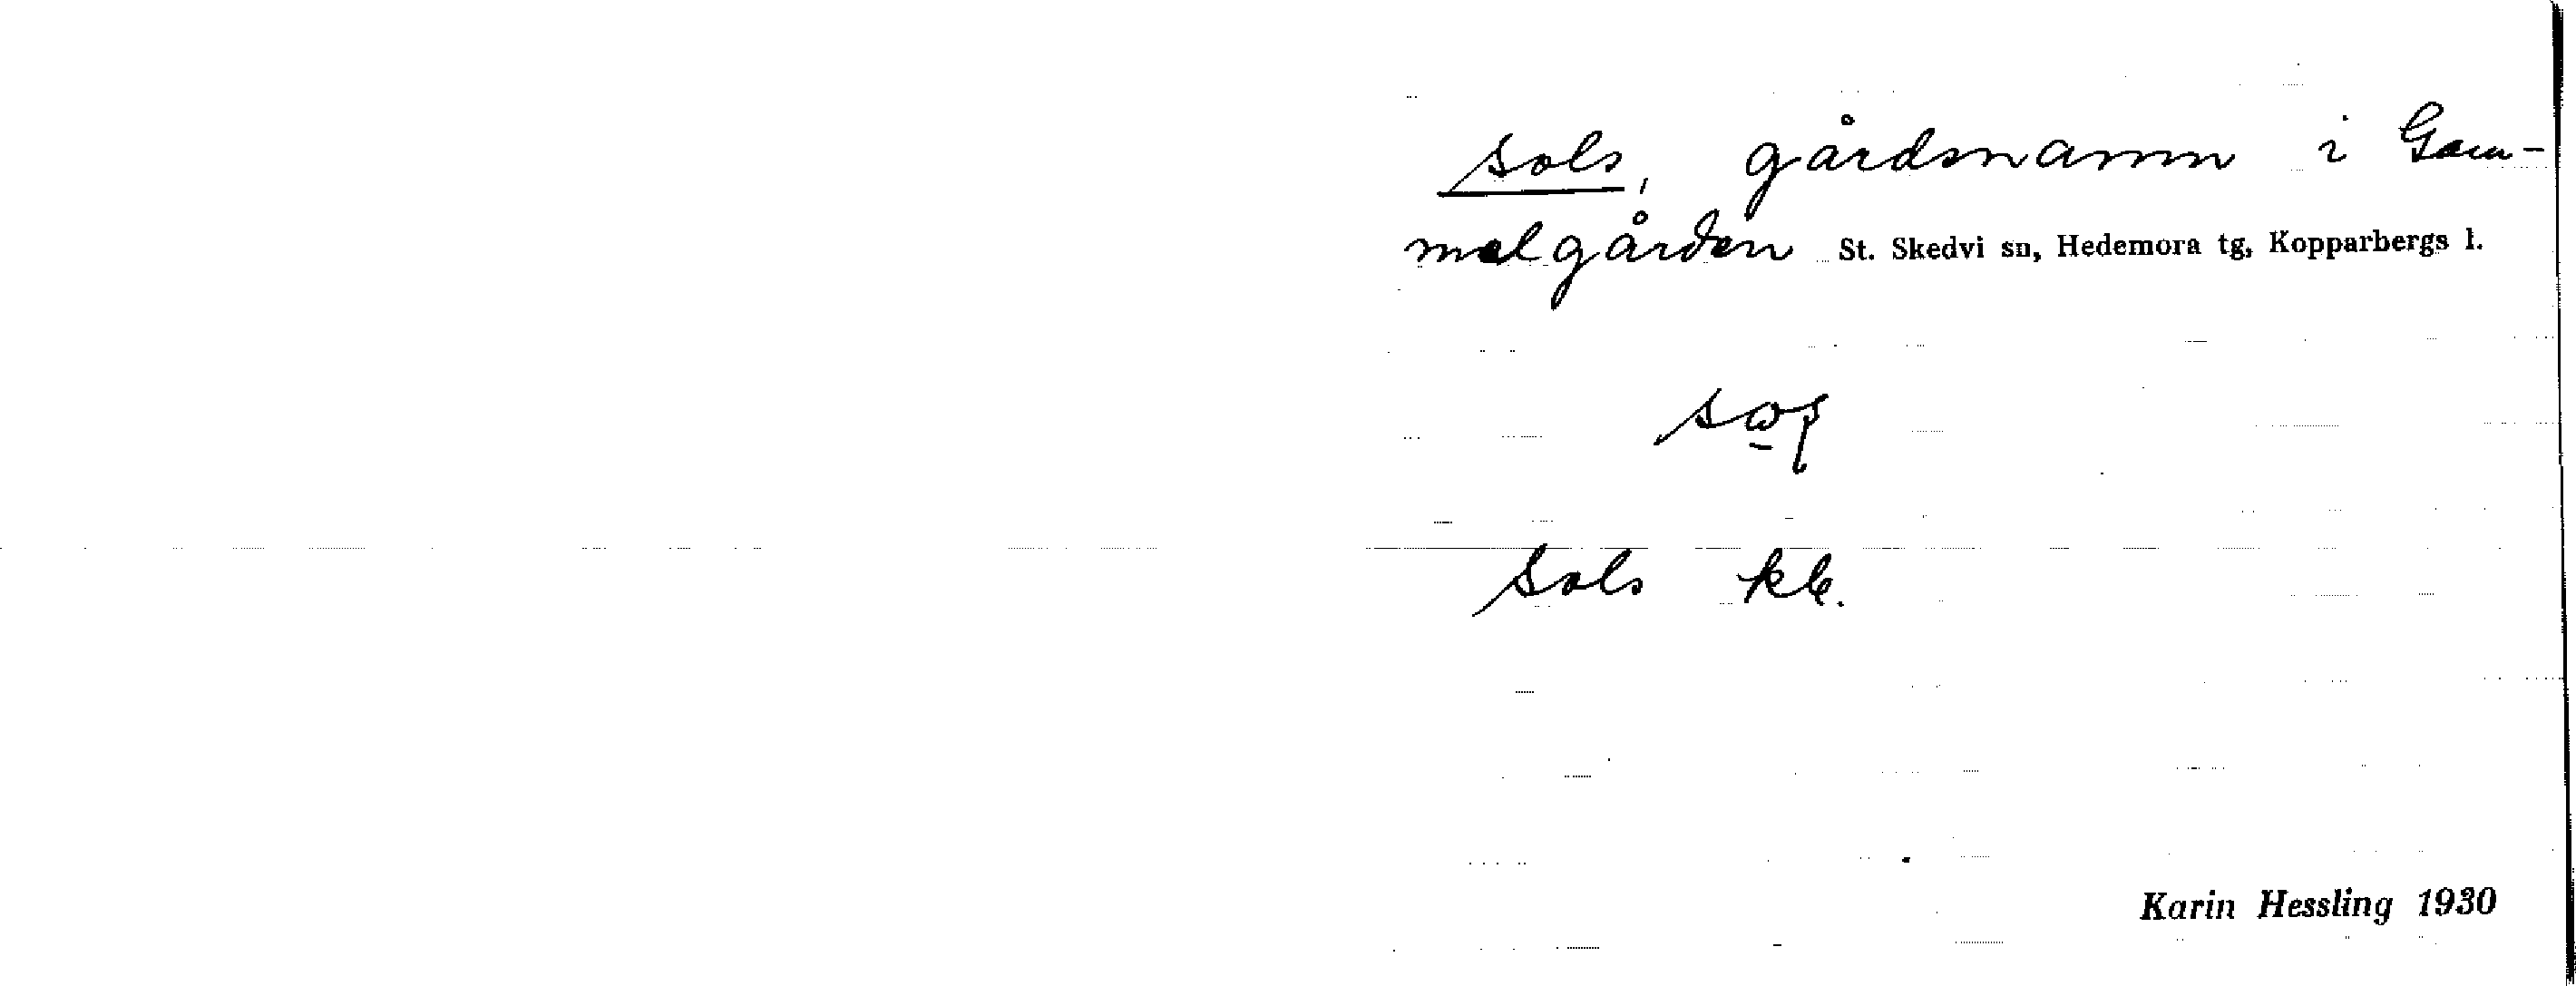 sols, gårdsnamn i Gam-
melgården St. Skedvi sn, Hedemora tg, Kopparbergs l.
Sols kb.
Karin Hessling 1930